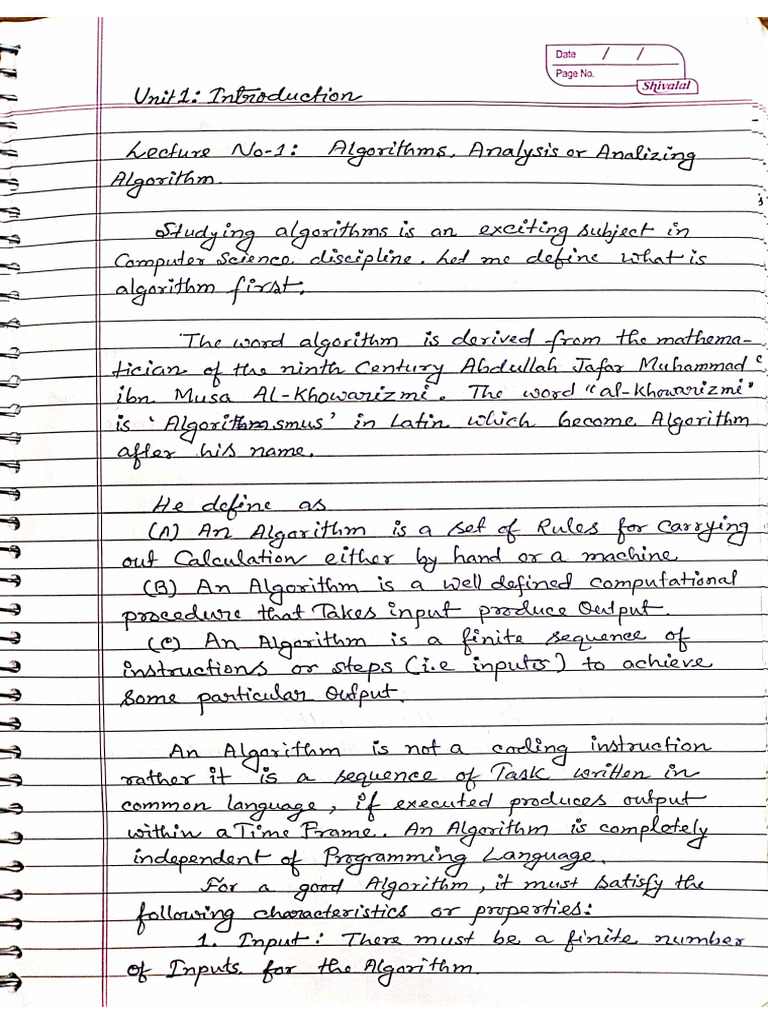 Date / /
Page No.
Shivalal
Unit 1: Introduction
Lecture No-1: Algorithms, Analysis or Analizing
Algorithm.
Studying algorithms is an exciting subject in
Computer Science discipline. Let me define what is
algorithm first.
The word algorithm is derived from the mathema-
tician of the ninth Century Abdullah Jafar Muhammad
ibn Musa AL-Khowarizmi. The word "al-khowarizmi"
is 'Algorithmsmus' in Latin which become Algorithm
after his name.
He define as
(A) An Algorithm is a set of Rules for carrying
out Calculation either by hand or a machine
(B) An Algorithm is a well defined computational
procedure that Takes input produce Output.
(C) An Algorithm is a finite sequence of
instructions or steps (i.e inputs) to achieve
Some particular Output.
An Algorithm is not a coding instruction
rather it is a sequence of Task written in
common language, if executed produces output
within a Time Frame. An Algorithm is completely
independent of Programming Language.
For a good Algorithm, it must satisfy the
following characteristics or properties:
1. Input: There must be a finite number
of Inputs for the Algorithm.